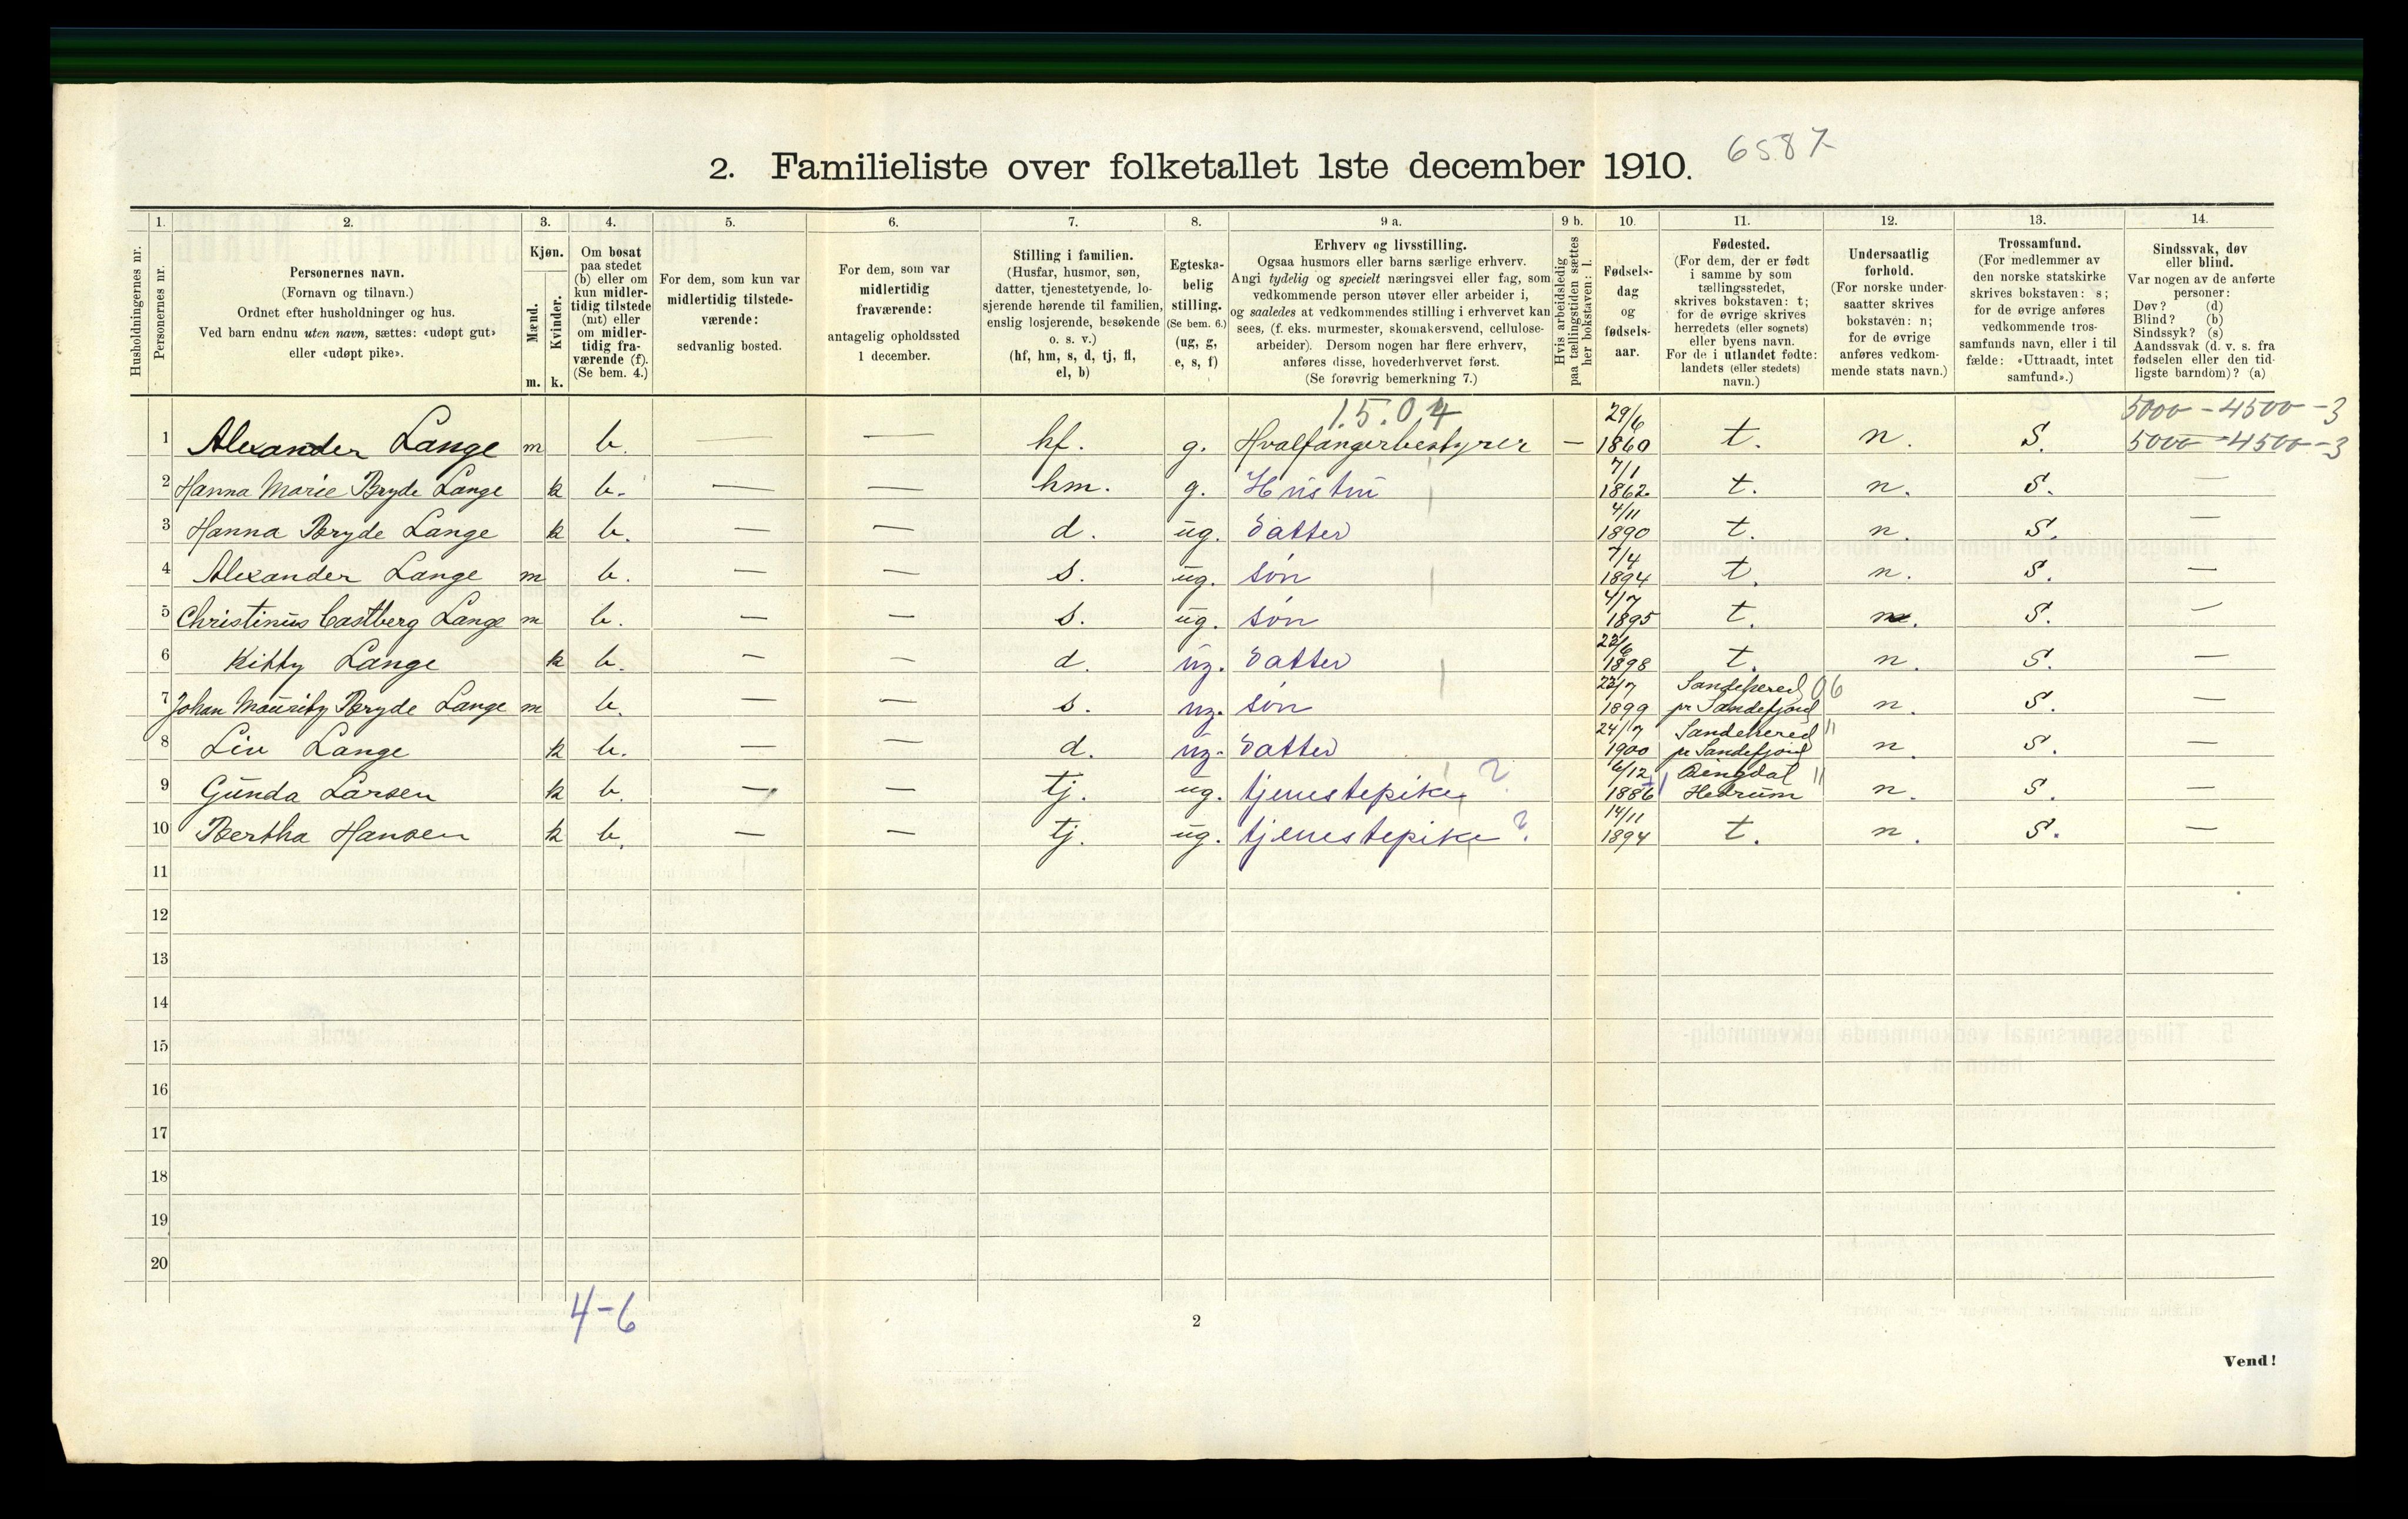 6587
2. Familieliste over folketallet 1ste december 1910.
Husholdningernes nr.
1. Personernes nr.
2. Personernes navn. (Fornavn og tilnavn.) Ordnet efter husholdninger og hus. Ved barn endnu uten navn, sættes: «udøpt gut» eller «udøpt pike».
3. Kjøn. Mænd. m. Kvinder. k.
4. Om bosat paa stedet (b) eller om kun midlertidig tilstede (mt) eller om midlertidig fraværende (f). (Se bem. 4.)
5. For dem, som kun var midlertidig tilstedeværende: sedvanlig bosted.
6. For dem, som var midlertidig fraværende: antagelig opholdssted 1 december.
7. Stilling i familien. (Husfar, husmor, søn, datter, tjenestetyende, losjerende hørende til familien, enslig losjerende, besøkende o. s. v.) (hf, hm, s, d, tj, fl, el, b)
8. Egteskabelig stilling. (Se bem. 6.) (ug, g, e, s, f)
9 a. Erhverv og livsstilling. Ogsaa husmors eller barns særlige erhverv. Angi tydelig og specielt næringsvei eller fag, som vedkommende person utøver eller arbeider i, og saaledes at vedkommendes stilling i erhvervet kan sees, (f. eks. murmester, skomakersvend, cellulosearbeider). Dersom nogen har flere erhverv, anføres disse, hovederhvervet først. (Se forøvrig bemerkning 7.)
9 b. Hvis arbeidsledig paa tællingstiden sættes her bokstaven: l.
10. Fødselsdag og fødselsaar.
11. Fødested. (For dem, der er født i samme by som tællingsstedet, skrives bokstaven: t; for de øvrige skrives herredets (eller sognets) eller byens navn. For de i utlandet fødte: landets (eller stedets) navn.)
12. Undersaatlig forhold. (For norske undersaatter skrives bokstaven: n; for de øvrige anføres vedkommende stats navn.)
13. Trossamfund. (For medlemmer av den norske statskirke skrives bokstaven: s; for de øvrige anføres vedkommende trossamfunds navn, eller i tilfælde: «Uttraadt, intet samfund».)
14. Sindssvak, døv eller blind. Var nogen av de anførte personer: Døv? (d) Blind? (b) Sindssyk? (s) Aandssvak (d. v. s. fra fødselen eller den tidligste barndom)? (a)
1.5.04
5000 - 4500 - 3
1 Alexander Lange m b. — — hf. g. Hvalfangerbestyrer — 29/6 1860 t. n. S. 5000 - 4500 - 3
2 Hanna Marie Bryde Lange k b. — — hm. g. Hustru 7/1 1862 t. n. S. —
3 Hanna Bryde Lange k b. — — d. ug. datter 4/11 1890 t. n. S. —
4 Alexander Lange m b. — — s. ug. søn 7/4 1894 t. n. S. —
5 Christinus Castberg Lange m b. — — s. ug. søn 4/7 1895 t. n. S. —
6 Kitty Lange k b. — — d. ug. datter 1898 t. n. S. —
7 Johan Mauritz Bryde Lange m b. — — s. ug. søn 1899 Sandehered pr Sandefjord 06 n. S. —
8 Liv Lange k b. — — d. ug. datter 24/7 1900 Sandehered pr Sandefjord " n. S. —
9 Gunda Larsen k b. — — tj. ug. tjenestepike ? 6/12 1886 Hedrum " n. S. —
10 Bertha Hansen k b. — — tj. ug. tjenestepike ? 14/11 1894 t. n. S. —
11
12
13
14
15
16
17
18
19
20
4-6
2
Vend!